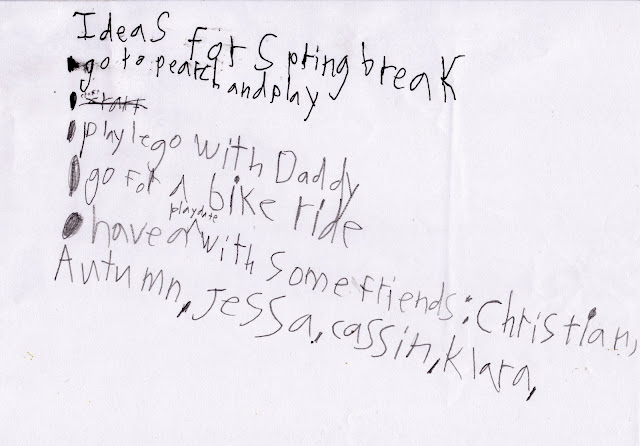 Ideas for Spring break
go to pearch and play
start
play lego with Daddy
go for A bike ride
have a playdate with some friends: Christian,
Autumn, Jessa, cassin, klara,